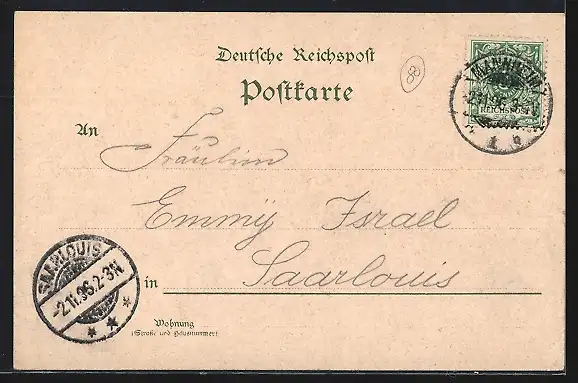 Deutsche Reichspost
Postkarte
80
MANNHEIM
2.11.96.
1 b
REICHSPOST
An
Fräulein
Emmy Israel
in Saarlouis
SAARLOUIS
-2.11.96.2-3N
* * *
Wohnung
(Straße und Hausnummer)